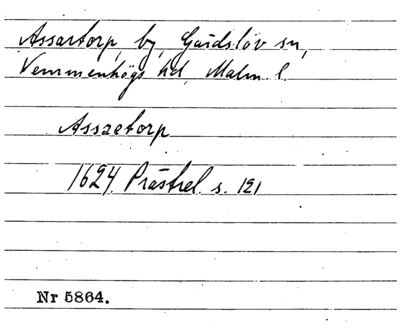 Assartorp, by, Gärdslöv sn,
Vemmenhögs hd, Malm. l.
Assaetorp
1624 Prästrel. s. 121
Nr 5864.